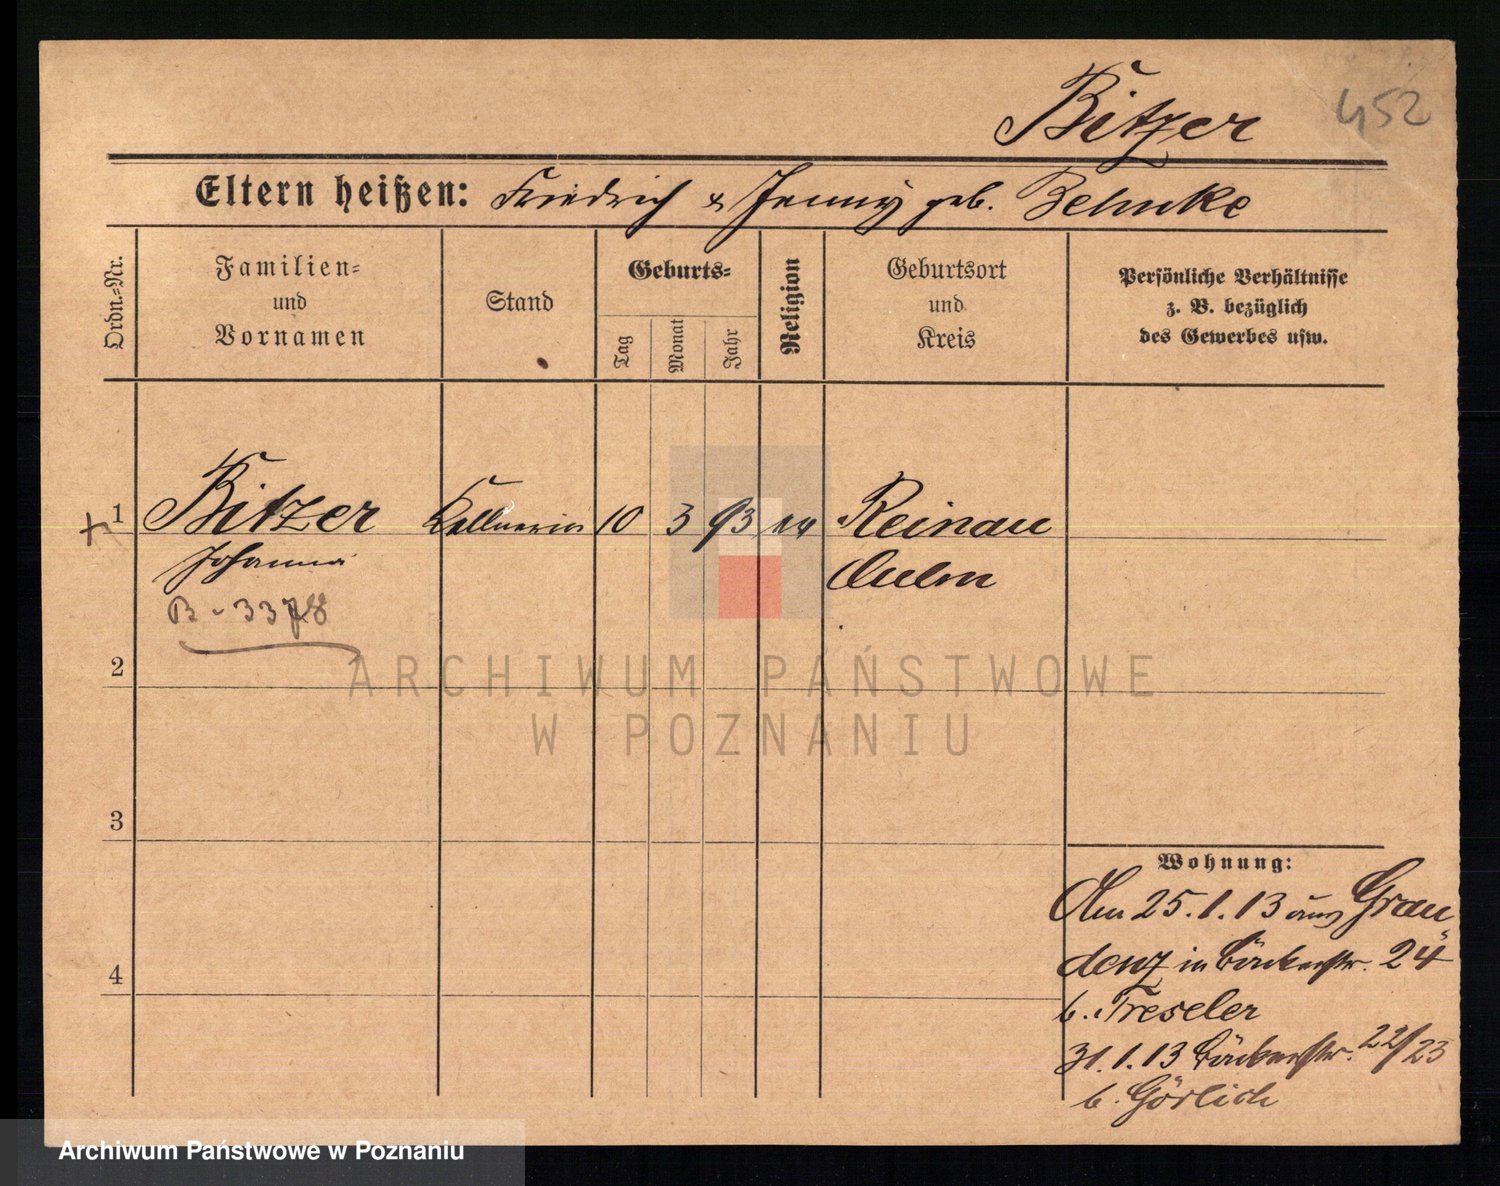 Bitzer 452
Eltern heißen: Friedrich & Jenny geb. Behnke
Ordn.-Nr.
Familien-
und
Vornamen
Stand
Geburts-
Tag
Monat
Jahr
Religion
Geburtsort
und
Kreis
Persönliche Verhältnisse
z. B. bezüglich
des Gewerbes usw.
1 Bitzer Kellnerin 10 3 93 ev Reinau
Johanna Culm
B - 3378
2
ARCHIWUM PAŃSTWOWE
W POZNANIU
3
Wohnung:
Am 25.1.13 aus Grau
denz in Bäckerstr. 24
4
b. Treseler
31.1.13 Bäckerstr. 22/23
b. Görlich
Archiwum Państwowe w Poznaniu